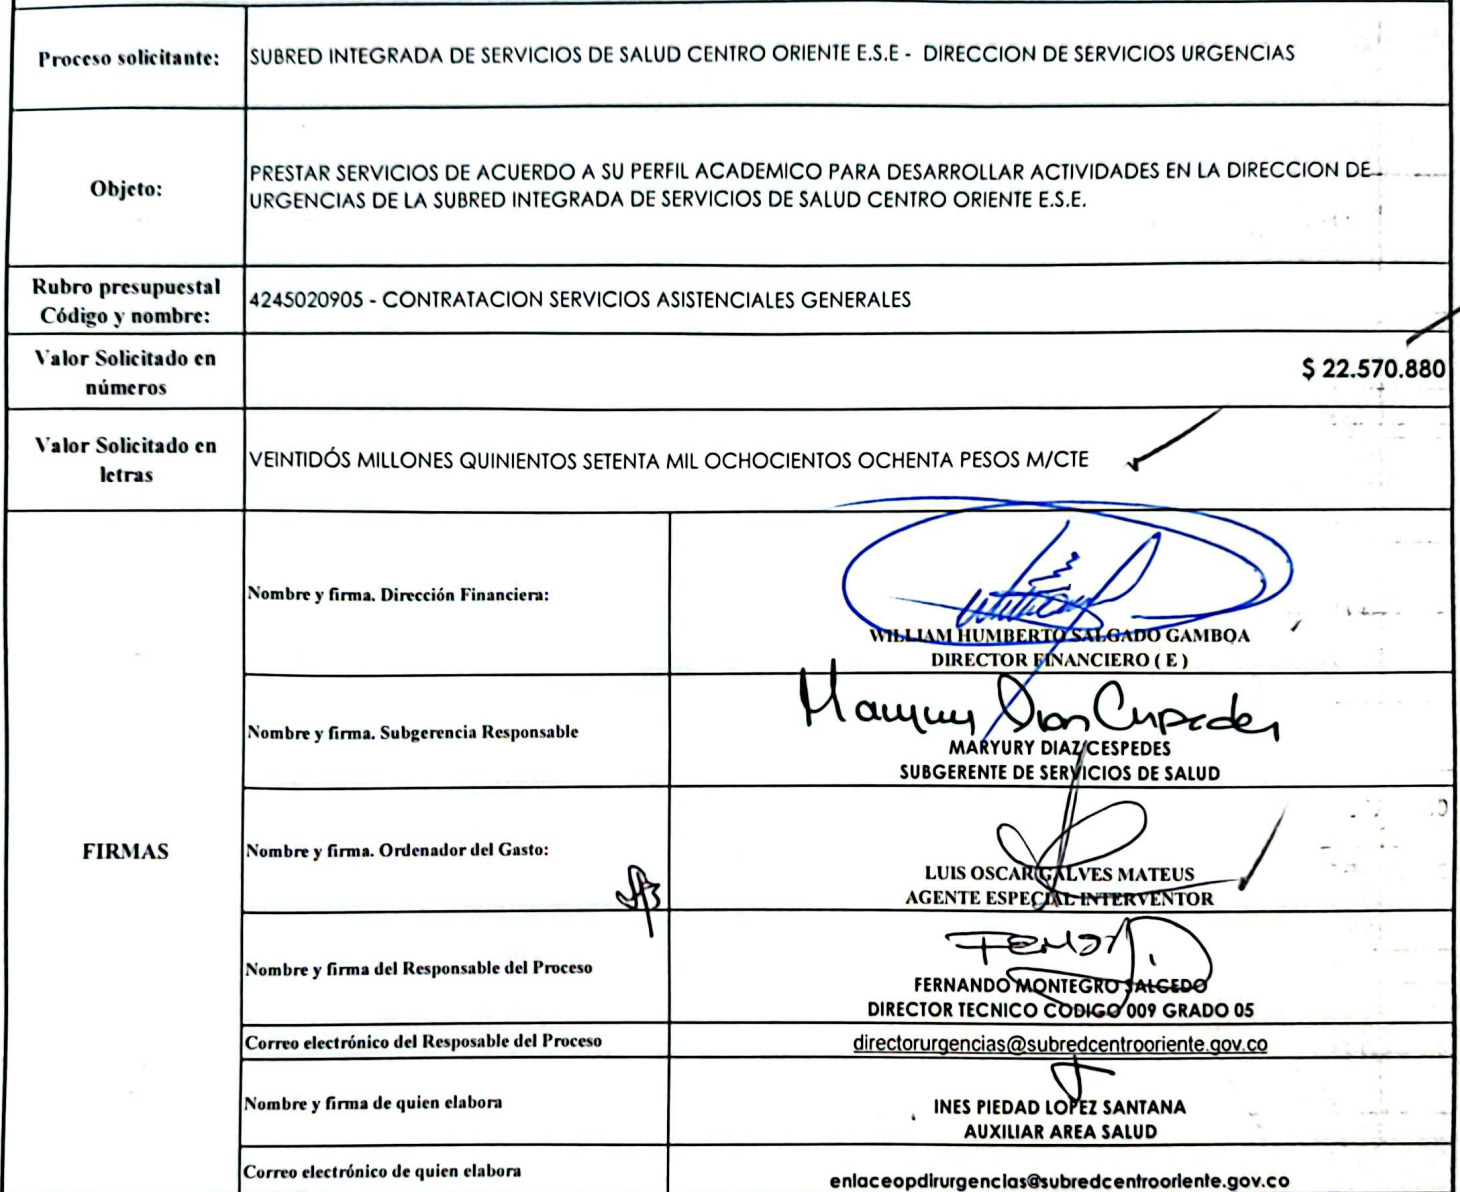 Proceso solicitante:
SUBRED INTEGRADA DE SERVICIOS DE SALUD CENTRO ORIENTE E.S.E - DIRECCION DE SERVICIOS URGENCIAS
Objeto:
PRESTAR SERVICIOS DE ACUERDO A SU PERFIL ACADEMICO PARA DESARROLLAR ACTIVIDADES EN LA DIRECCION DE
URGENCIAS DE LA SUBRED INTEGRADA DE SERVICIOS DE SALUD CENTRO ORIENTE E.S.E.
Rubro presupuestal
Código y nombre:
4245020905 - CONTRATACION SERVICIOS ASISTENCIALES GENERALES
Valor Solicitado en
números
$ 22.570.880
Valor Solicitado en
letras
VEINTIDÓS MILLONES QUINIENTOS SETENTA MIL OCHOCIENTOS OCHENTA PESOS M/CTE
FIRMAS
Nombre y firma. Dirección Financiera:
WILLIAM HUMBERTO SALGADO GAMBOA
DIRECTOR FINANCIERO ( E )
Nombre y firma. Subgerencia Responsable
Maryury Diaz Cespedes
MARYURY DIAZ CESPEDES
SUBGERENTE DE SERVICIOS DE SALUD
Nombre y firma. Ordenador del Gasto:
LUIS OSCAR GALVES MATEUS
AGENTE ESPECIAL INTERVENTOR
Nombre y firma del Responsable del Proceso
FERNANDO MONTEGRO SALGEDO
DIRECTOR TECNICO CODIGO 009 GRADO 05
Correo electrónico del Resposable del Proceso
directorurgencias@subredcentrooriente.gov.co
Nombre y firma de quien elabora
INES PIEDAD LOPEZ SANTANA
AUXILIAR AREA SALUD
Correo electrónico de quien elabora
enlaceopdirurgencias@subredcentrooriente.gov.co